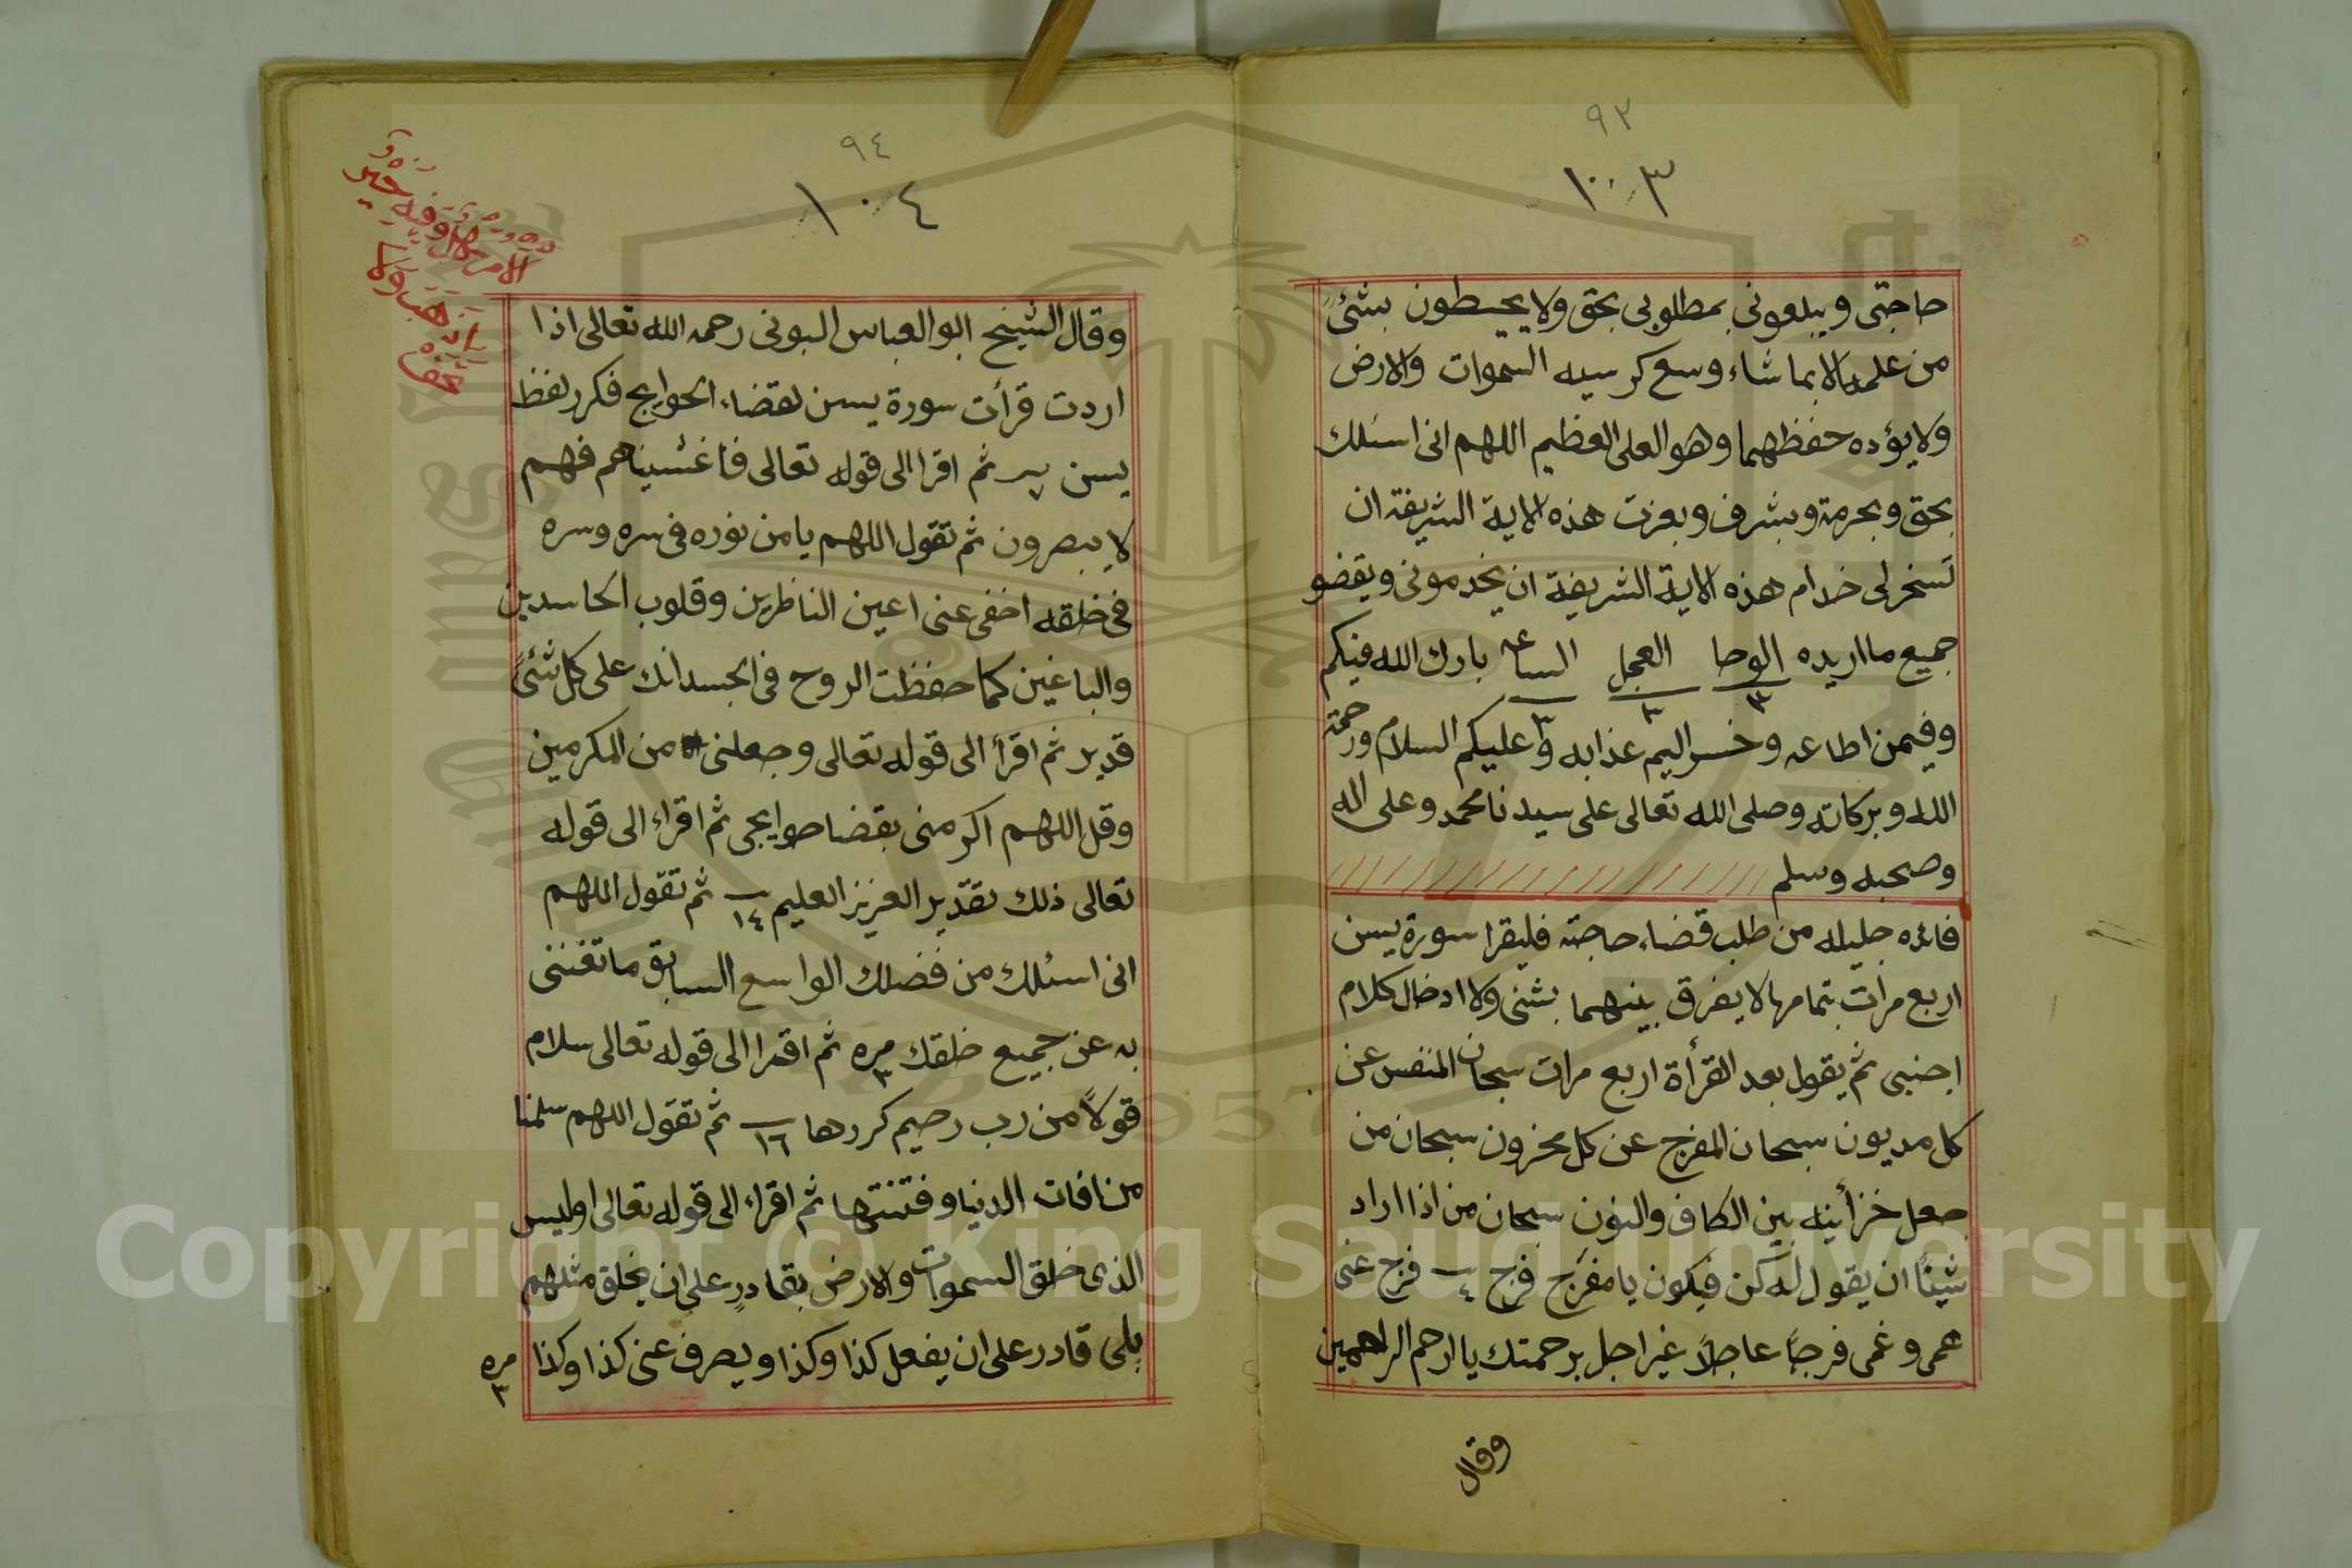 ٩٣
١٠٣
حاجتى ويبلعونى بمطلوبى بحق ولا يحيطون بشئ
من علمه الا بما شاء وسع كرسيه السموات والارض
ولا يؤده حفظهما وهو العلى العظيم اللهم انى اسئلك
بحق وبحرمة وبشرف وبعزت هذه الاية الشريفة ان
تسخرلى خدام هذه الاية الشريفة ان يخدمونى ويقضو
جميع ما اريده الوحا ٣ العجل ٣ الساعه ٣ بارك الله فيكم
وفيمن اطاعه وخسر اليم عذابه وعليكم السلام ورحمة
الله وبركاته وصلى الله تعالى على سيدنا محمد وعلى اله
وصحبه وسلم
فائده جليله من طلب قضاء حاجته فليقرا سورة يسن
اربع مرات بتمامها لا يفرق بينهما بشئ ولا ادخال كلام
اجنبى ثم يقول بعد القرأة اربع مرات سبحان المنفس عن
كل مديون سبحان المفرج عن كل محزون سبحان من
جعل خزأينه بين الكاف والنون سبحان من اذا اراد
شيئاً ان يقول له كن فيكون يا مفرج فرج ٤ فرج عنى
همى وغمى فرجاً عاجلاً غير اجل برحمتك يا ارحم الراحمين
وقال
٩٤
١٠٤
وقال الشيخ ابو العباس البونى رحمه الله تعالى اذا
اردت قرأت سورة يسن لقضاء الحوايج فكرر لفظ
يسن ثم اقرا الى قوله تعالى فاغشيناهم فهم
لا يبصرون ثم تقول اللهم يا من نوره فى سره وسره
فى خلقه اخفى عنى اعين الناظرين وقلوب الحاسدين
والباغين كما حفظت الروح فى الجسد انك على كل شئً
قدير ثم اقرأ الى قوله تعالى وجعلنى من المكرمين
وقل اللهم اكرمنى بقضا حوايجى ثم اقراء الى قوله
تعالى ذلك تقدير العزيز العليم ١٤ ثم تقول اللهم
انى اسئلك من فضلك الواسع السابق ما تغننى
به عن جميع خلقك ٣ مره ثم اقرا الى قوله تعالى سلام
قولاً من رب رحيم كررها ١٦ ثم تقول اللهم سلمنا
من افات الدنيا وفتنتها ثم اقراء الى قوله تعالى اوليس
الذى خلق السموات والارض بقادرٍ على ان يخلق مثلهم
بلى قادر على ان يفعل كذا وكذا ويصرف عنى كذا وكذا ٣ مره
Copyright © King Saud University